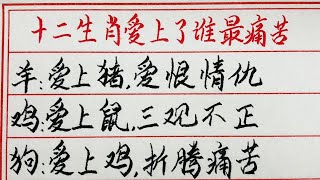 十二生肖爱上了谁最痛苦
羊:爱上猪,爱恨情仇
鸡:爱上鼠,三观不正
狗:爱上鸡,折腾痛苦